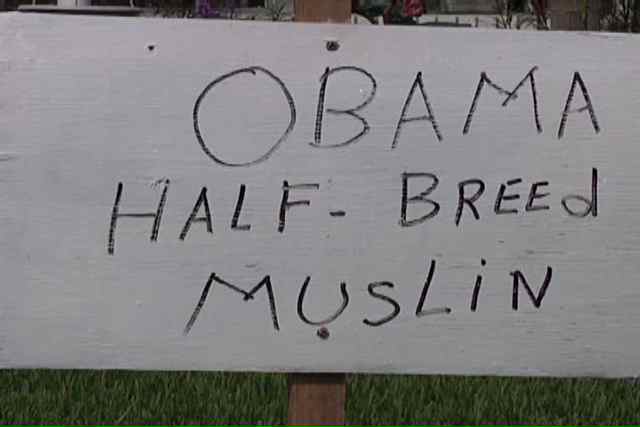 OBAMA
HALF-BREEd
MUSLiN